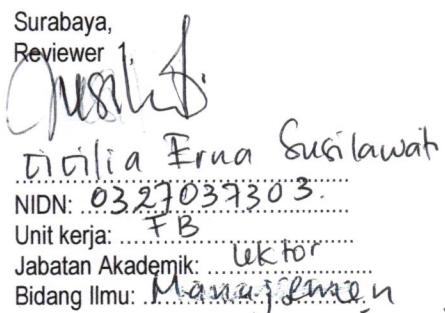 Surabaya,
Reviewer 1
Cicilia Erna Susilawati
NIDN: 0327037303.
Unit kerja: FB
Jabatan Akademik: lektor
Bidang Ilmu: Manajemen